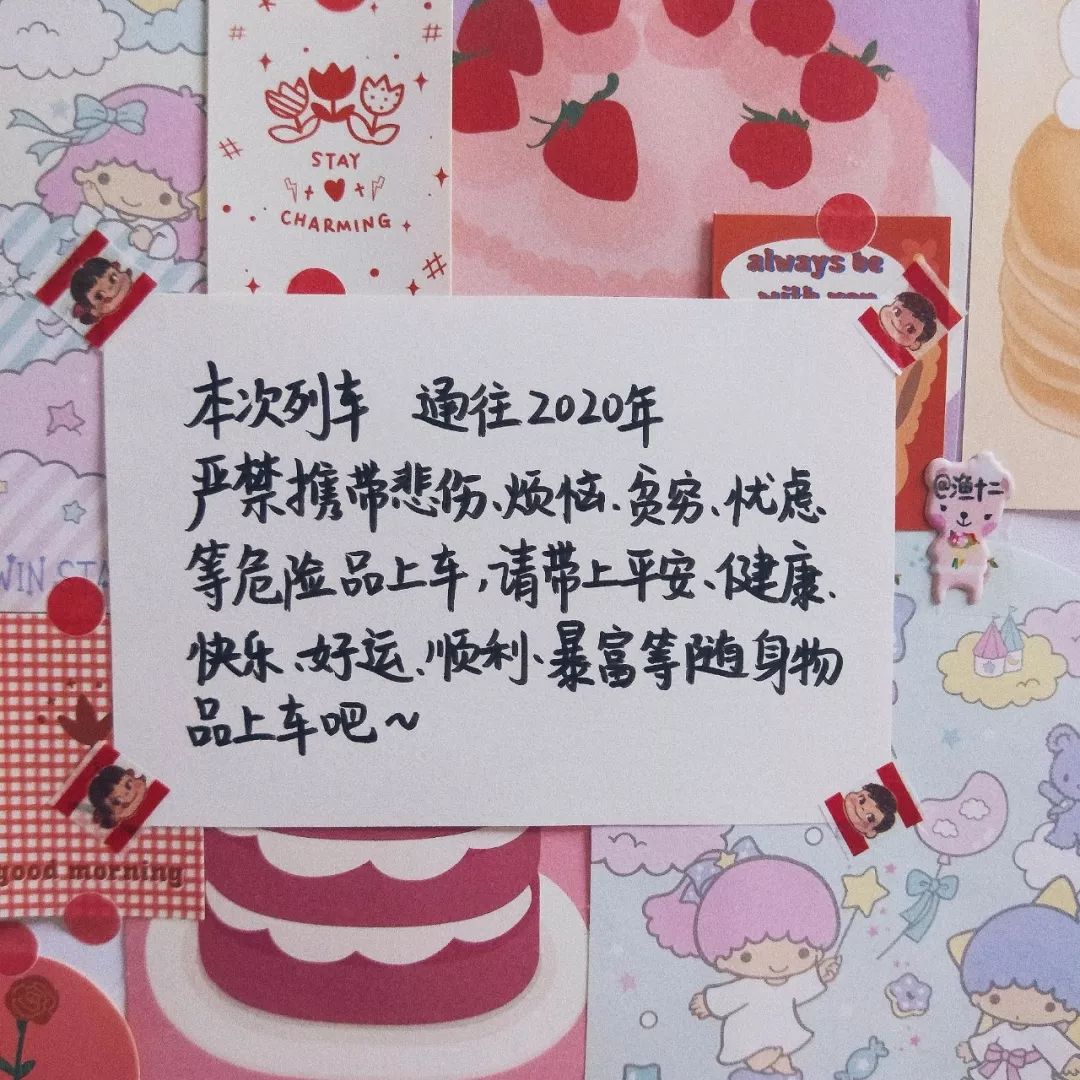 STAY
CHARMING
always be
with you
本次列车 通往2020年
严禁携带悲伤、烦恼、贫穷、忧虑
等危险品上车,请带上平安、健康、
快乐、好运、顺利、暴富等随身物
品上车吧~
@渔十二
WIN STA
good morning